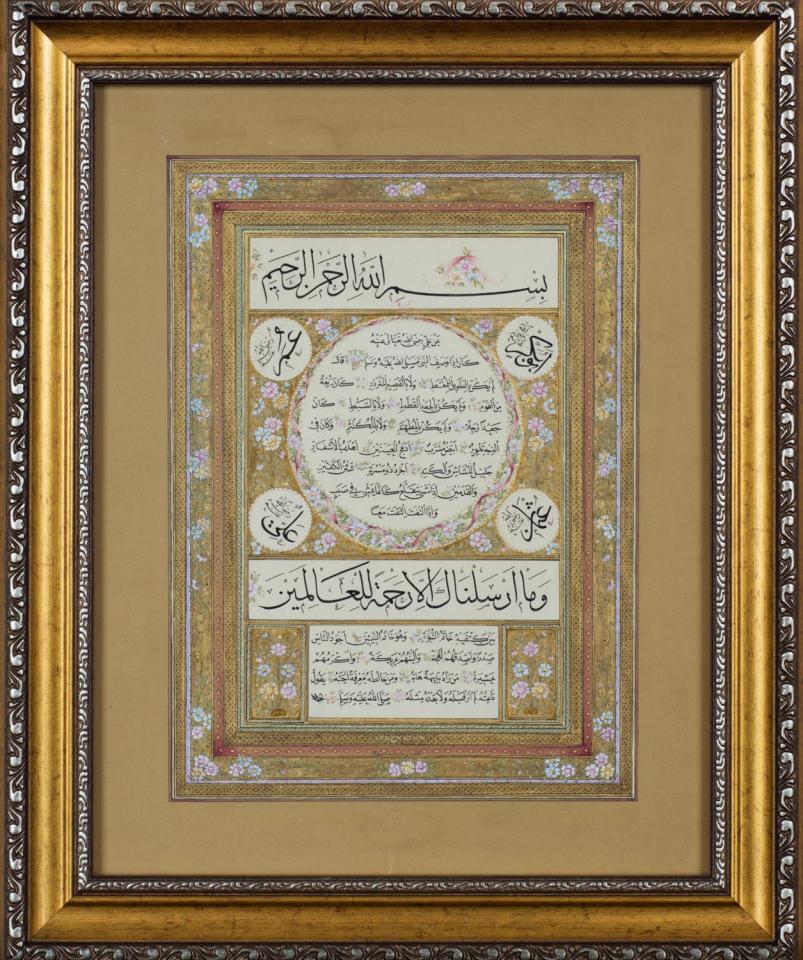 بسم الله الرحمن الرحيم
أبو بكر
عمر
عن علي رضي الله تعالى عنه
كان إذا وصف النبي صلى الله عليه وسلم قال
لم يكن بالطويل الممغط ولا بالقصير المتردد كان ربعة
من القوم ولم يكن بالجعد القطط ولا بالسبط كان
جعدا رجلا ولم يكن بالمطهم ولا بالمكلثم وكان في
الوجه تدوير أبيض مشرب أدعج العينين أهدب الأشفار
جليل المشاش والكتد أجرد ذو مسربة شثن الكفين
والقدمين إذا مشى يتقلع كأنما يمشي في صبب
وإذا التفت التفت معا
عثمان
علي
وما أرسلناك إلا رحمة للعالمين
بين كتفيه خاتم النبوة وهو خاتم النبيين أجود الناس
صدرا وأصدقهم لهجة وألينهم عريكة وأكرمهم
عشيرة من رآه بديهة هابه ومن خالطه معرفة أحبه يقول
ناعته لم أر قبله ولا بعده مثله صلى الله عليه وسلم